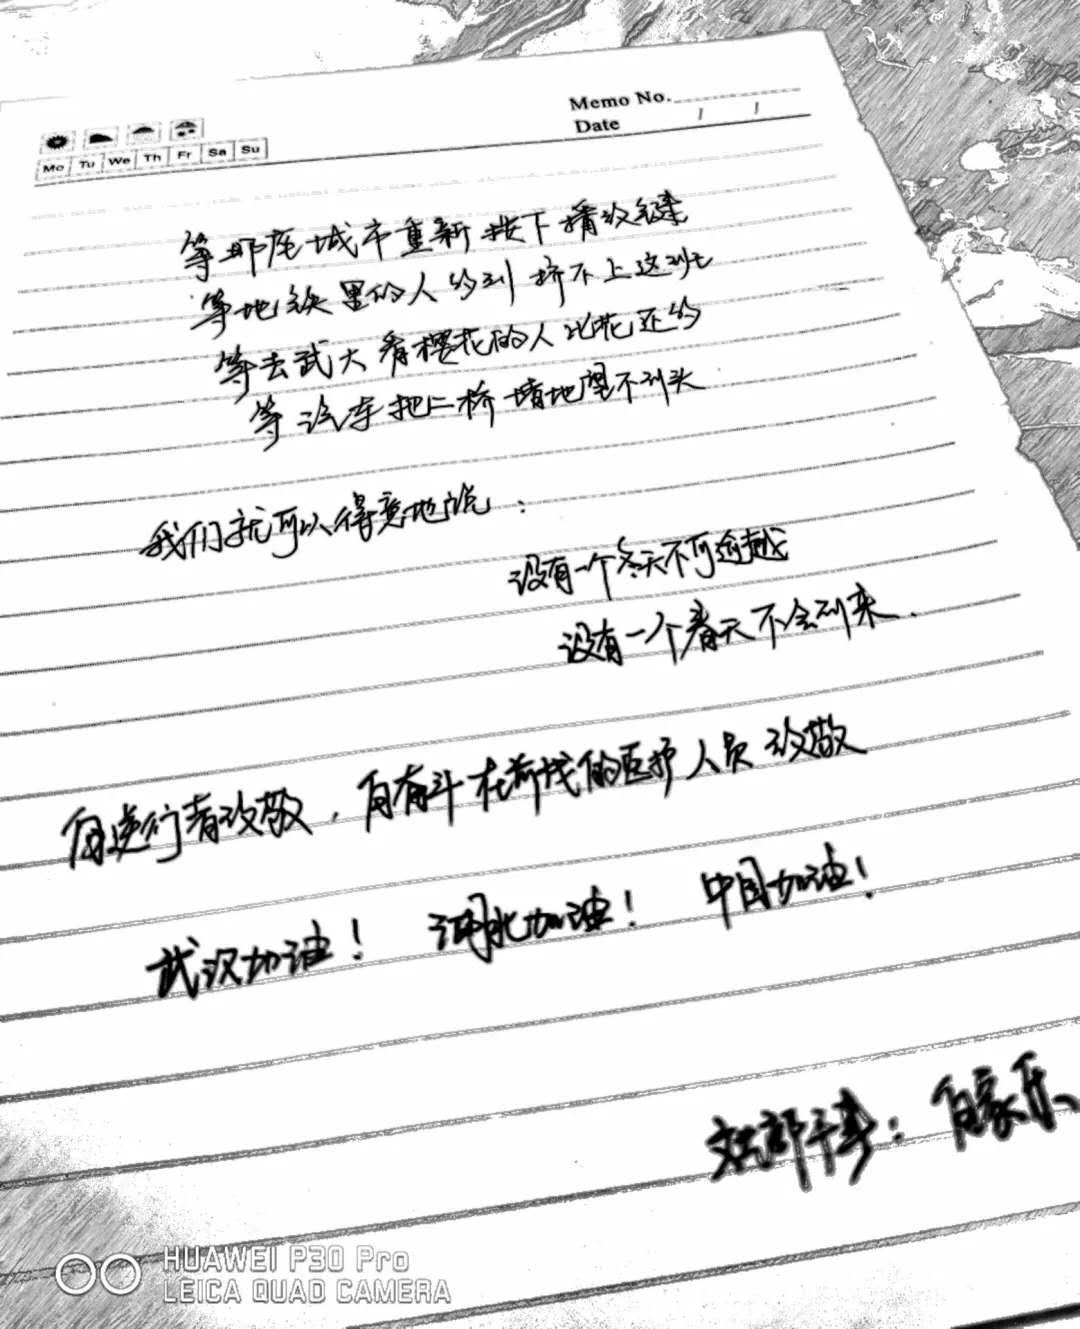 Memo No.
Date / /
Mo Tu We Th Fr Sa Su
等那座城市重新按下播放键
等地铁里的人多到挤不上这班
等去武大看樱花的人比花还多
等汽车把二桥堵地望不到头
我们就可以得意地说：
没有一个冬天不可逾越
没有一个春天不会到来.
向逆行者致敬，向奋斗在前线的医护人员致敬
武汉加油！ 湖北加油！ 中国加油！
干事：向家乐
HUAWEI P30 Pro
LEICA QUAD CAMERA